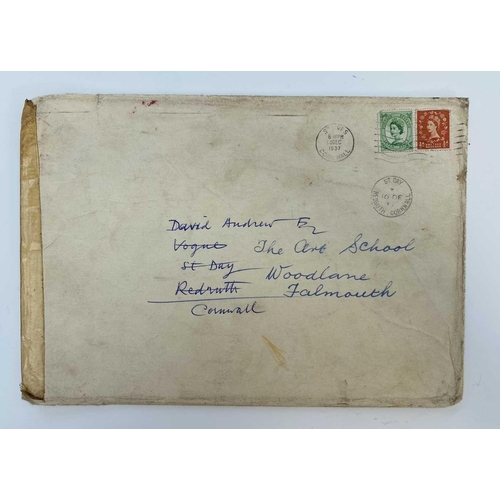 ST. IVES
DEC
1957
CORNWALL
ST. DAY
10 DE
REDRUTH CORNWALL
David Andrew Esq
Vogue The Art School
St Day Woodlane
Redruth Falmouth
Cornwall